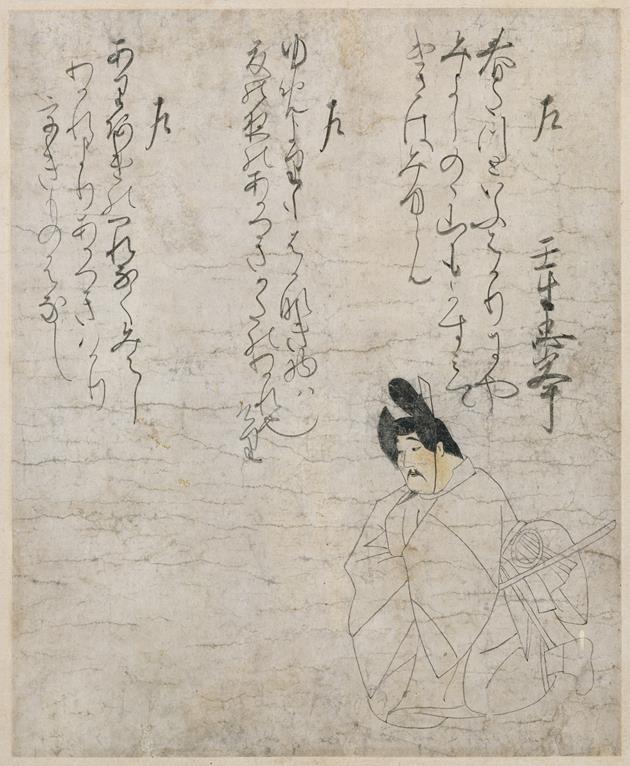 左
壬生忠峯
春たつといふはかりにや
みよしのゝ山もかすみて
けさはみゆらん
左
ゆめよりもはかなき物ハ
夏の夜のあかつきかたのわかれ也けり
左
ありあけのつれなくみえし
わかれよりあかつきハかり
うきものはなし